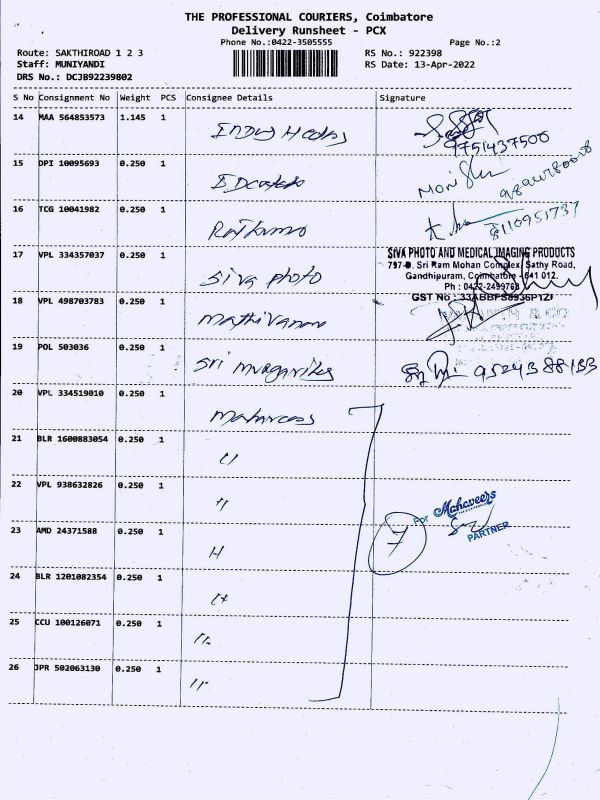 THE PROFESSIONAL COURIERS, Coimbatore
Delivery Runsheet - PCX
Phone No.:0422-3505555 Page No.:2
Route: SAKTHIROAD 1 2 3 RS No.: 922398
Staff: MUNIYANDI RS Date: 13-Apr-2022
DRS No.: DCJB92239802
S No Consignment No Weight PCS Consignee Details Signature
14 MAA 564853573 1.145 1
9751437500
15 DPI 10095693 0.250 1
16 TCG 10041982 0.250 1
8110951737
17 VPL 334357037 0.250 1 Siva photo
SIVA PHOTO AND MEDICAL IMAGING PRODUCTS
797-D, Sri Ram Mohan Complex, Sathy Road,
Gandhipuram, Coimbatore - 641 012.
Ph : 0422-2499768
GST No : 33ABBFS8936P1ZI
18 VPL 498703783 0.250 1 Mathivanan
19 POL 503036 0.250 1 Sri 9524388133
20 VPL 334519010 0.250 1
21 BLR 1600883054 0.250 1 "
22 VPL 938632826 0.250 1 "
For Mahaveers
PARTNER
7
23 AMD 24371588 0.250 1 "
24 BLR 1201082354 0.250 1 "
25 CCU 100126071 0.250 1 "
26 JPR 502063130 0.250 1 "